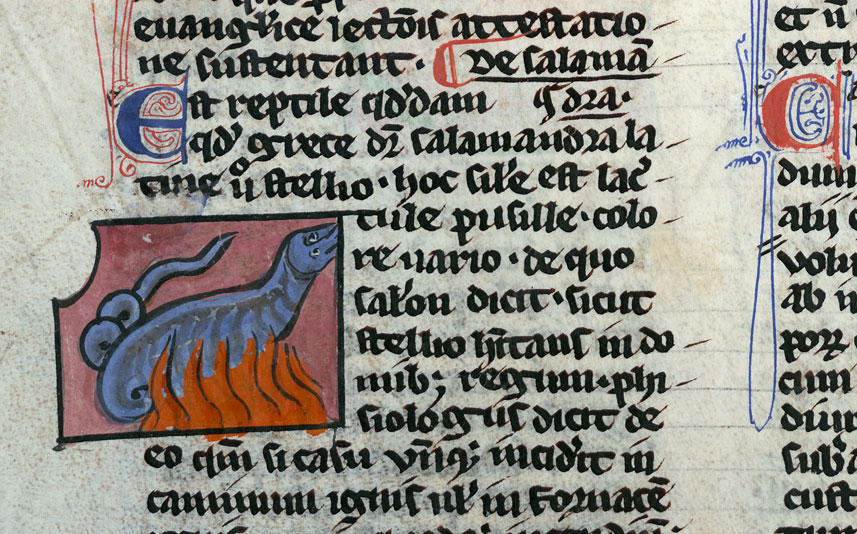 euangelice lectōis attestatio
ne sustentant. De salamā
Est reptile qd'dam dra.
qd' grece dr̄ salamandra la
tine ů stellio. hoc sil'e est lac̄
tule pusille. colo
re uario. de quo
sal'on dicit. sicut
stellio hītans in do
mib; regum. phi
siologus dicit de
eo qm̄ si casu vn̄q; incid'it in
caminum ignis ul' in fornacē
et ů
extr
dum
alij
volu
ab i
porr
cum
diui
sub
cust